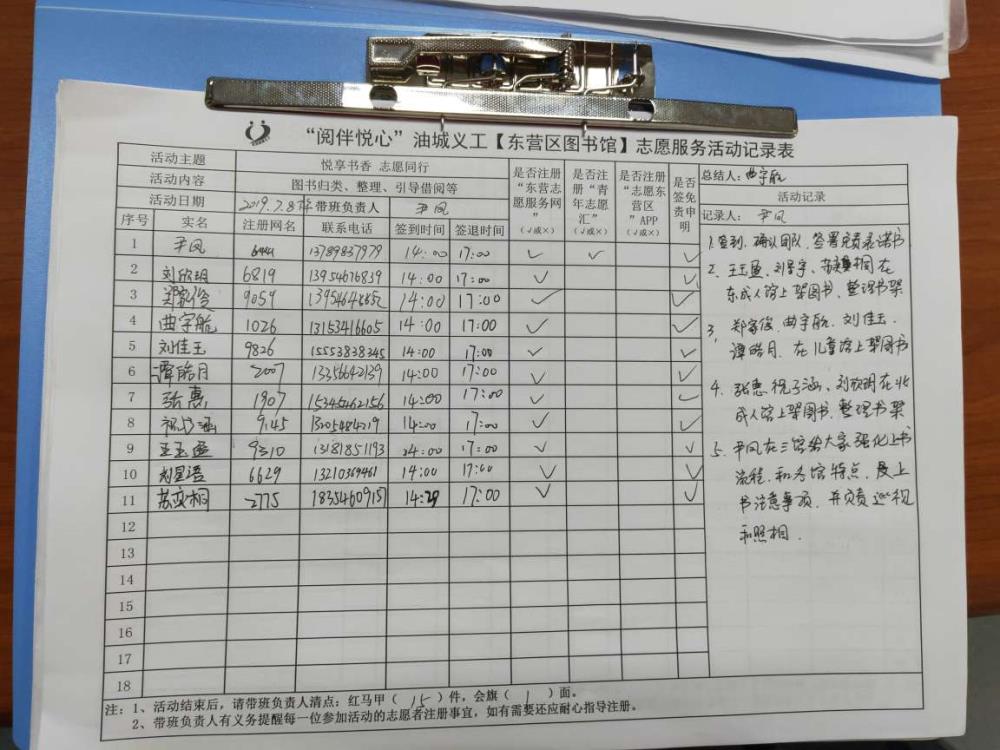 “阅伴悦心”油城义工【东营区图书馆】志愿服务活动记录表
活动主题 悦享书香 志愿同行
活动内容 图书归类、整理、引导借阅等
活动日期 2019.7.8下午 带班负责人 尹凤
序号 实名 注册网名 联系电话 签到时间 签退时间 是否注册“东营志愿服务网”(√或×) 是否注册“青年志愿汇”(√或×) 是否注册“志愿东营区”APP(√或×) 是否签免责申明
1 尹凤 13789837979 14:00 17:00 √ √ √
2 刘欣玥 6819 13954676839 14:00 17:00 √ √
3 9059 14:00 17:00 √ √
4 曲宇航 1026 13153416605 14:00 17:00 √ √
5 刘佳玉 9826 15553838345 14:00 17:00 √ √
6 谭皓月 2007 13356642139 14:00 17:00 √ √
7 张惠 1907 15345462156 14:00 17:00 √ √
8 祝子涵 9145 13205484219 14:00 17:00 √ √
9 王玉盈 9310 13181851193 14:00 17:00 √ √
10 6629 13210369461 14:00 17:00 √ √
11 苏奕桐 2775 18354609157 14:29 17:00 √ √
12
13
14
15
16
17
18
总结人：曲宇航
活动记录
记录人：尹凤
1.签到、确认团队、签署免责承诺书
2、王玉盈、苏奕桐在
东成人馆上架图书、整理书架
3、郑家俊、曲宇航、刘佳玉、
谭皓月、在儿童馆上架图书
4、张惠、祝子涵、刘欣玥在北
成人馆上架图书、整理书架
5、尹凤在三馆给大家强化上书
流程、和各馆特点、及上
书注意事项、并负责巡视
和照相.
注：1、活动结束后，请带班负责人清点：红马甲（15）件，会旗（1）面。
2、带班负责人有义务提醒每一位参加活动的志愿者注册事宜，如有需要还应耐心指导注册。